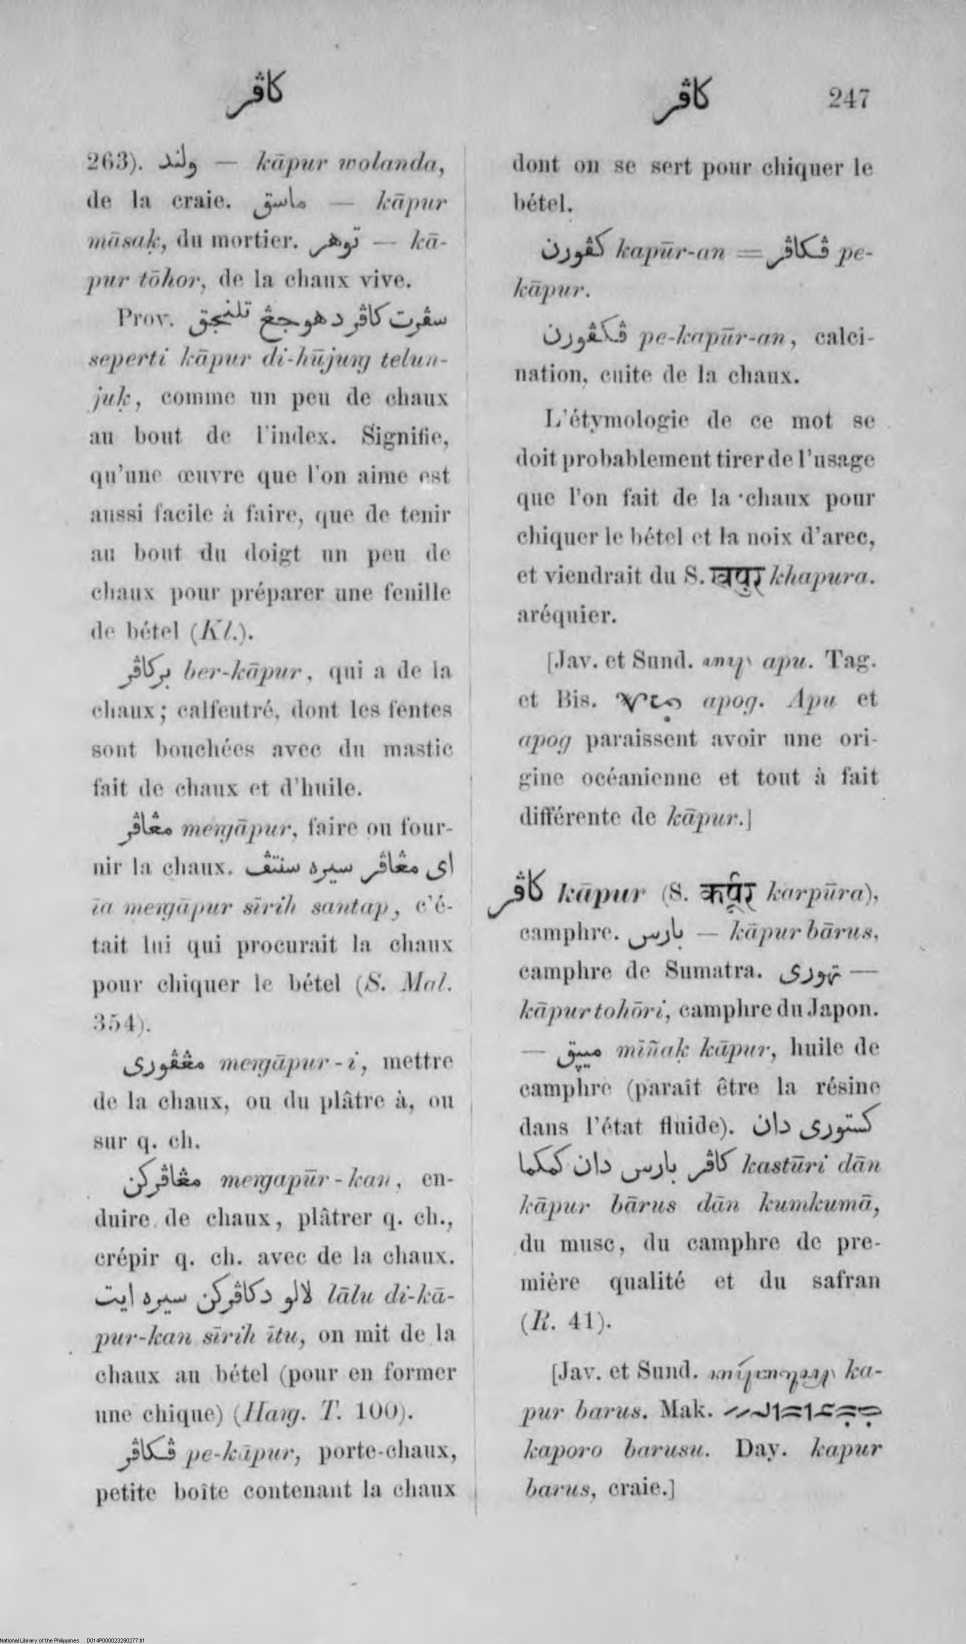 كاڤر
كاڤر 247
263). ولند — kāpur wolanda,
de la craie. ماسق — kāpur
māsaḳ, du mortier. توهر — kā-
pur tōhor, de la chaux vive.
Prov. سڤرت كاڤر د هوجڠ تلنجق
seperti kāpur di-hūjuṅg telun-
juḳ, comme un peu de chaux
au bout de l'index. Signifie,
qu'une œuvre que l'on aime est
aussi facile à faire, que de tenir
au bout du doigt un peu de
chaux pour préparer une feuille
de bétel (Kl.).
بركاڤر ber-kāpur, qui a de la
chaux; calfeutré, dont les fentes
sont bouchées avec du mastic
fait de chaux et d'huile.
مڠاڤر meṅgāpur, faire ou four-
nir la chaux. اى مڠاڤر سيره سنتڤ
īa meṅgāpur sīrih santap, c'é-
tait lui qui procurait la chaux
pour chiquer le bétel (S. Mal.
354).
مڠڤورى meṅgāpur-i, mettre
de la chaux, ou du plâtre à, ou
sur q. ch.
مڠاڤركن meṅgapūr-kan, en-
duire de chaux, plâtrer q. ch.,
crépir q. ch. avec de la chaux.
لالو دكاڤركن سيره ايت lālu di-kā-
pur-kan sīrih ītu, on mit de la
chaux au bétel (pour en former
une chique) (Haṅg. T. 100).
ڤكاڤر pe-kāpur, porte-chaux,
petite boîte contenant la chaux
dont on se sert pour chiquer le
bétel.
كڤورن kapūr-an = ڤكاڤر pe-
kāpur.
ڤكڤورن pe-kapūr-an, calci-
nation, cuite de la chaux.
L'étymologie de ce mot se
doit probablement tirer de l'usage
que l'on fait de la chaux pour
chiquer le bétel et la noix d'arec,
et viendrait du S. खपुर khapura.
aréquier.
[Jav. et Sund. apu. Tag.
et Bis. apog. Apu et
apog paraissent avoir une ori-
gine océanienne et tout à fait
différente de kāpur.]
كاڤر kāpur (S. कर्पूर karpūra),
camphre. بارس — kāpur bārus,
camphre de Sumatra. تهورى —
kāpur tohōri, camphre du Japon.
— مييق mīñaḳ kāpur, huile de
camphre (paraît être la résine
dans l'état fluide). كستورى دان
كاڤر بارس دان كمكما kastūri dān
kāpur bārus dān kumkumā,
du musc, du camphre de pre-
mière qualité et du safran
(R. 41).
[Jav. et Sund. ka-
pur barus. Mak.
kaporo barusu. Day. kapur
barus, craie.]
National Library of the Philippines